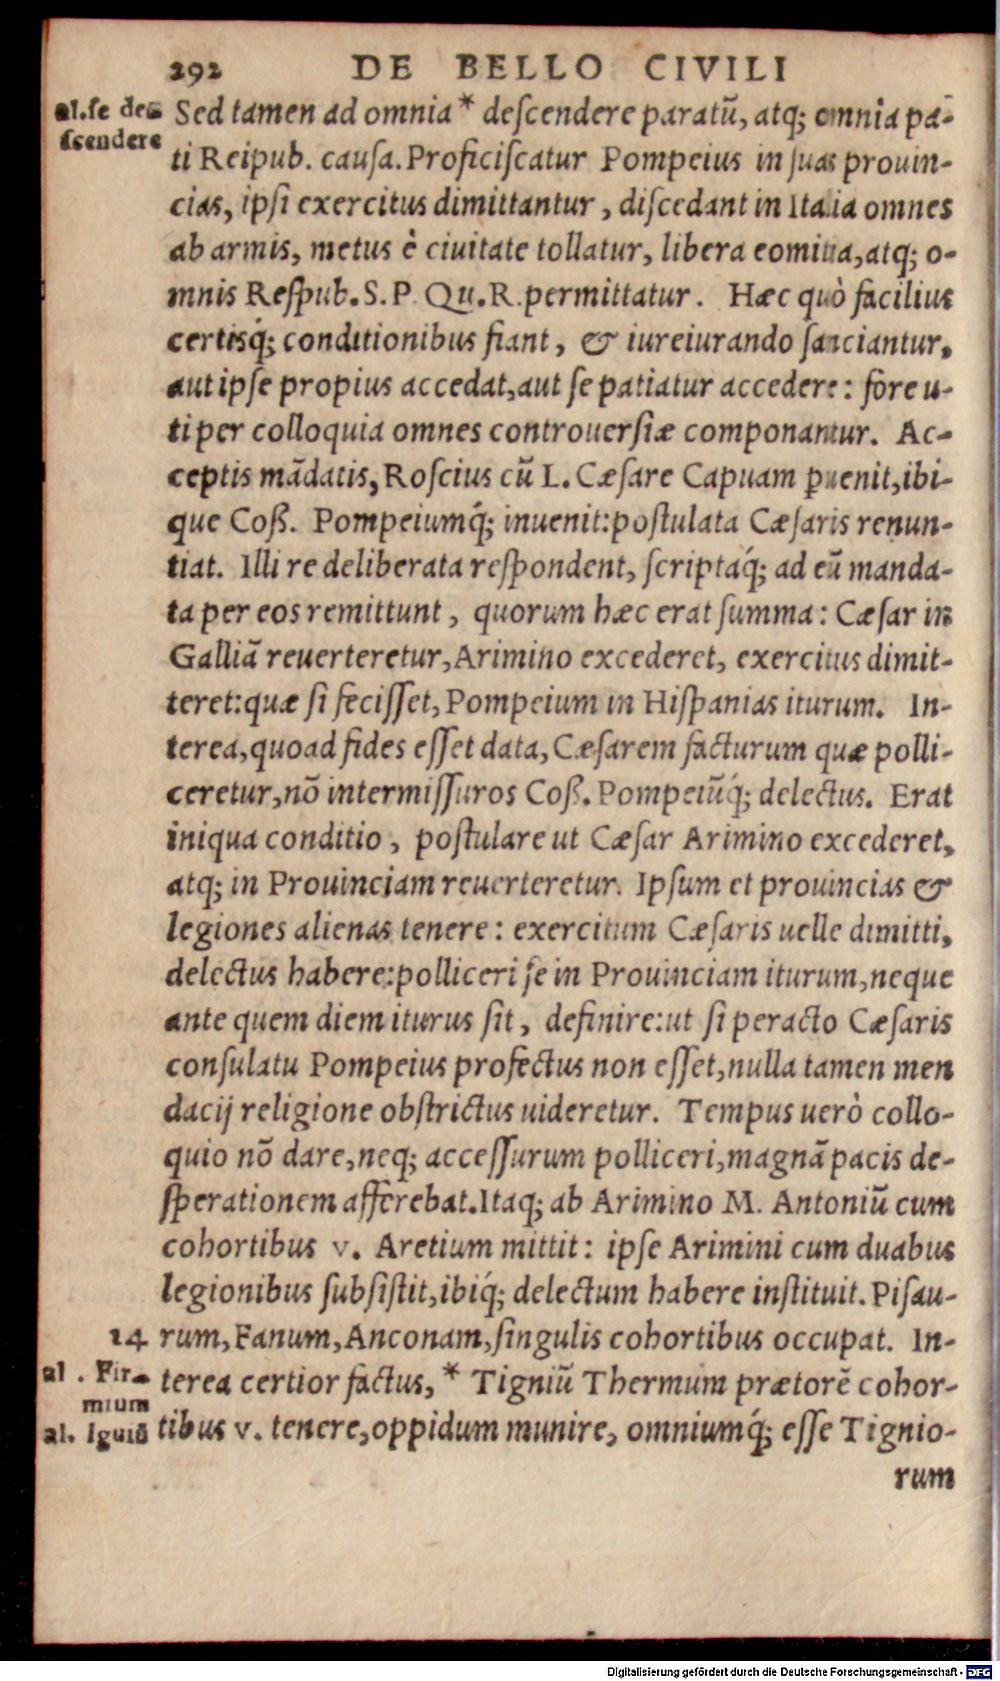 292 DE BELLO CIVILI
al. se de=
scendere
Sed tamen ad omnia * descendere paratũ, atq; omnia pa-
ti Reipub. causa. Proficiscatur Pompeius in suas prouin-
cias, ipsi exercitus dimittantur, discedant in Italia omnes
ab armis, metus è ciuitate tollatur, libera comitia, atq; o-
mnis Respub. S. P. Qu. R. permittatur. Hæc quò facilius
certisq́; conditionibus fiant, & iureiurando sanciantur,
aut ipse propius accedat, aut se patiatur accedere: fore u-
ti per colloquia omnes controuersiæ componantur. Ac-
ceptis mãdatis, Roscius cũ L. Cæsare Capuam peruenit, ibi-
que Coß. Pompeiumq́; inuenit: postulata Cæsaris renun-
tiat. Illi re deliberata respondent, scriptaq́; ad eũ manda-
ta per eos remittunt, quorum hæc erat summa: Cæsar in
Galliã reuerteretur, Arimino excederet, exercitus dimit-
teret: quæ si fecisset, Pompeium in Hispanias iturum. In-
terea, quoad fides esset data, Cæsarem facturum quæ polli-
ceretur, nõ intermissuros Coß. Pompeiũq́; delectus. Erat
iniqua conditio, postulare ut Cæsar Arimino excederet,
atq; in Prouinciam reuerteretur. Ipsum et prouincias &
legiones alienas tenere: exercitum Cæsaris uelle dimitti,
delectus habere: polliceri se in Prouinciam iturum, neque
ante quem diem iturus sit, definire: ut si peracto Cæsaris
consulatu Pompeius profectus non esset, nulla tamen men
dacij religione obstrictus uideretur. Tempus uerò collo-
quio nõ dare, neq; accessurum polliceri, magnã pacis de-
sperationem afferebat. Itaq; ab Arimino M. Antoniũ cum
cohortibus v. Aretium mittit: ipse Arimini cum duabus
legionibus subsistit, ibiq́; delectum habere instituit. Pisau-
14 rum, Fanum, Anconam, singulis cohortibus occupat. In-
al. Fir=
mium
al. Iguiũ
terea certior factus, * Tigniũ Thermum prætorẽ cohor-
tibus v. tenere, oppidum munire, omniumq́; esse Tignio-
rum
Digitalisierung gefördert durch die Deutsche Forschungsgemeinschaft - DFG